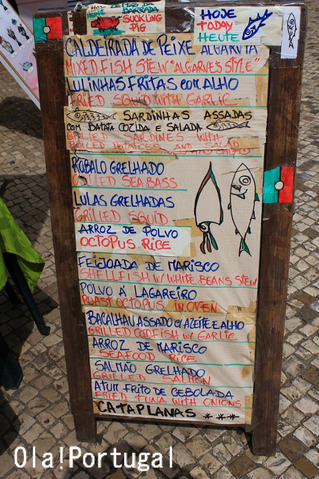 HOJE
TODAY
HEUTE
SUCKLING
PIG
CALDEIRADA DE PEIXE ALGARVIA
MIXED FISH STEW "ALGARVES STYLE"
LULINHAS FRITAS COM ALHO
FRIED SQUID WITH GARLIC
SARDINHAS ASSADAS
COM BATATA COZIDA E SALADA
SARDINES WITH
ROBALO GRELHADO
GRILLED SEABASS
LULAS GRELHADAS
GRILLED SQUID
ARROZ DE POLVO
OCTOPUS RICE
FEIJOADA DE MARISCO
SHELLFISH W/ WHITE BEANS STEW
POLVO À LAGAREIRO
ROAST OCTOPUS IN OVEN
BACALHAU ASSADO C/ AZEITE E ALHO
GRILLED CODFISH W/ GARLIC
ARROZ DE MARISCO
SEAFOOD RICE
SALMÃO GRELHADO
GRILLED SALMON
ATUM FRITO DE CEBOLADA
FRIED TUNA WITH ONIONS
CATAPLANAS
Ola!Portugal